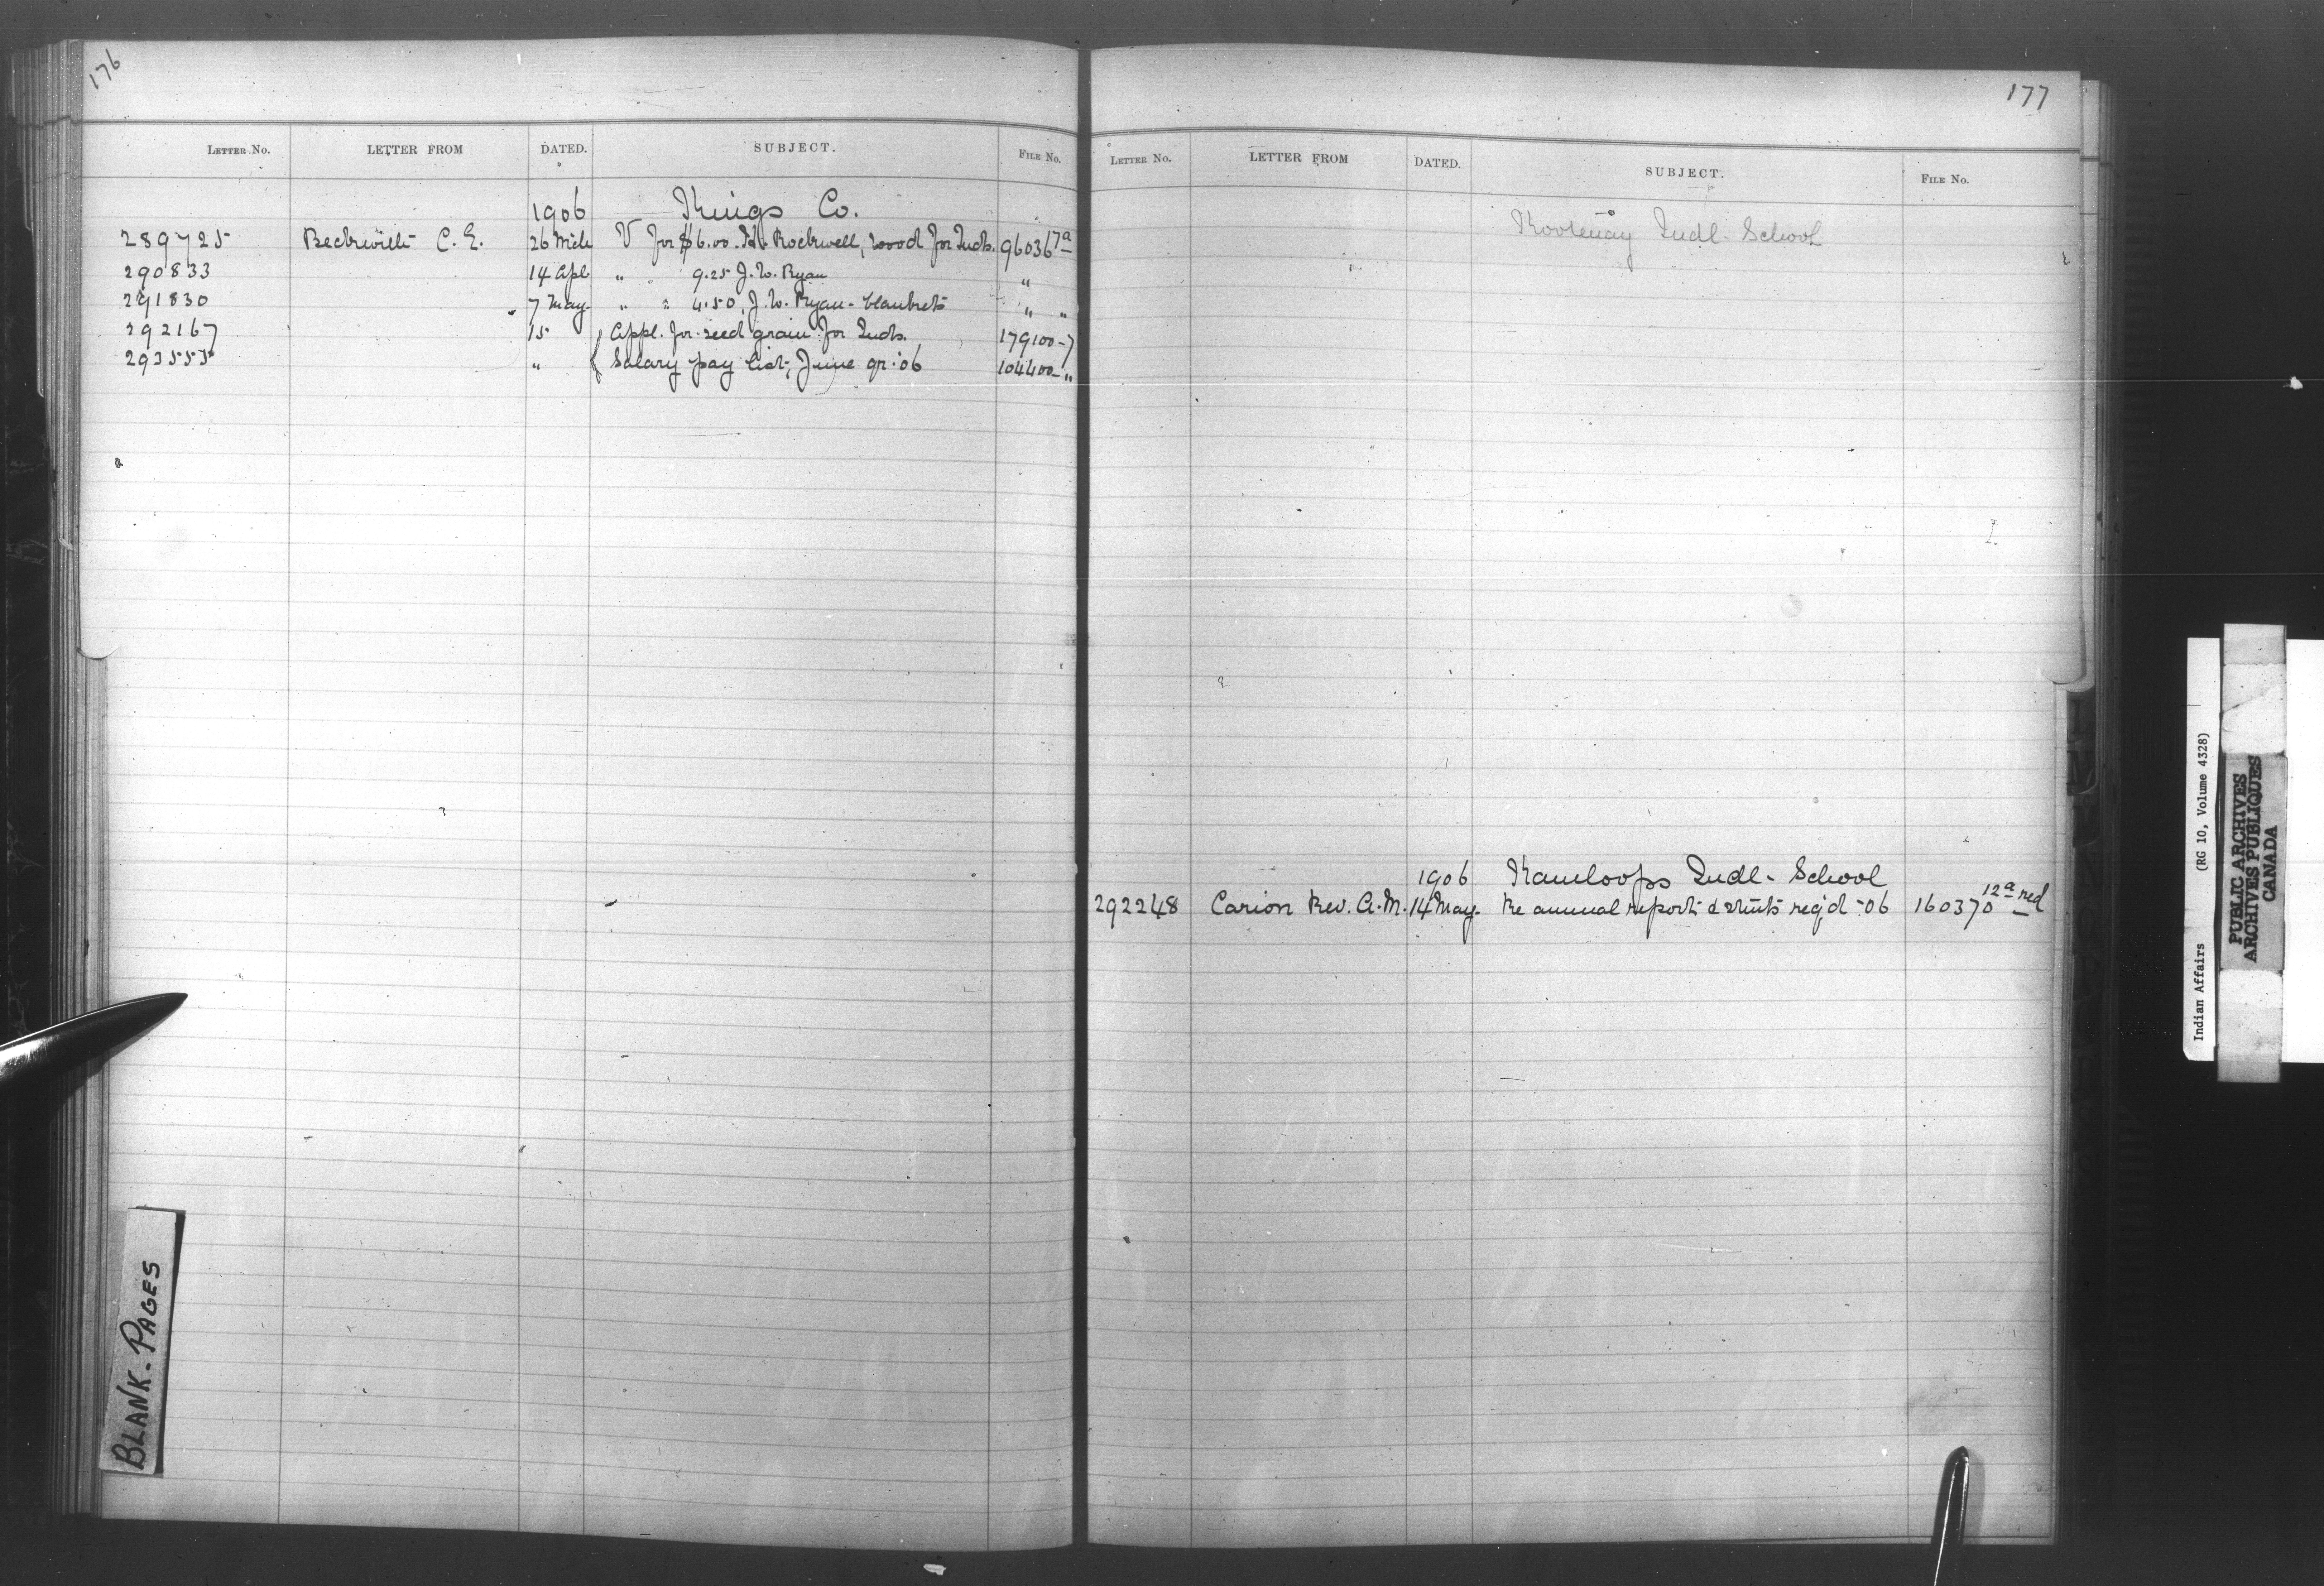 176
LETTER No. LETTER FROM DATED. SUBJECT. FILE No.
1906 Kings Co.
289725 Beckwith C. E. 26 Mch V for $6.00. H. Rockwell, wood for Inds. 96036 7a
290833 14 Apl " " 9.25 J. W. Ryan "
291830 7 May. " " 4.50, J. W. Ryan - blankets " "
292167 15 Appl. for seed grain for Inds. 179100-7
293555 " Salary pay list, June qr. '06 104400-"
BLANK-PAGES
177
LETTER No. LETTER FROM DATED. SUBJECT. FILE No.
Kootenay Indl. School
1906 Kamloops Indl. School
292248 Carion Rev. A. M. 14 May. Re annual report & stmts req'd '06 160370 12a red
Indian Affairs (RG 10, Volume 4328)
PUBLIC ARCHIVES
ARCHIVES PUBLIQUES
CANADA